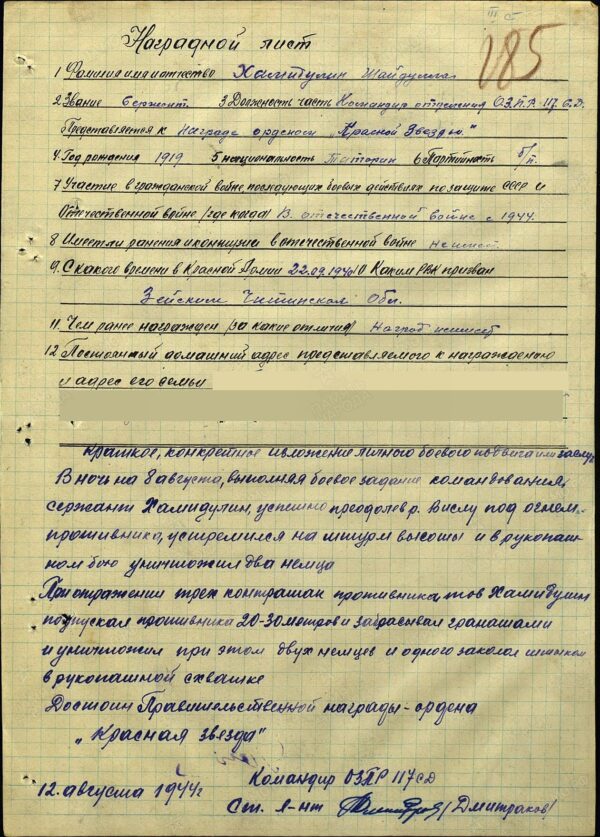 185
Наградной лист
1 Фамилия имя отчество Хамидулин Шайдулла
2 Звание Сержант 3 Должность часть Командир отделения О.З.П.Р. 117 С.Д.
Представляется к Награде орденом „Красной Звезды"
4 Год рождения 1919 5 национальность Татарин 6 Партийность б/п.
7 Участие в гражданской войне, последующих боевых действиях по защите СССР и
Отечественной войне (где когда) В отечественной войне с 1944.
8 Имеет ли ранения и контузии в отечественной войне не имеет
9. С какого времени в Красной Армии 22.09.1940 10 Каким РВК призван
Зейским Читинская Обл.
11. Чем ранее награжден (за какие отличия) Наград не имеет
12 Постоянный домашний адрес представляемого к награждению
и адрес его семьи
Краткое, конкретное изложение личного боевого подвига или заслуг
В ночь на 8 августа, выполняя боевое задание командования,
сержант Хамидулин, успешно преодолев р. Вислу под огнем
противника, устремился на штурм высоты и в рукопаш-
ном бою уничтожил два немца
При отражении трех контратак противника тов Хамидулин
подпускал противника 20-30 метров и забрасывал гранатами
и уничтожил при этом двух немцев и одного заколол штыком
в рукопашной схватке
Достоин Правительственной награды - ордена
„Красная звезда"
Командир ОЗПР 117 СД
12. августа 1944г Ст. л-нт /Дмитраков/